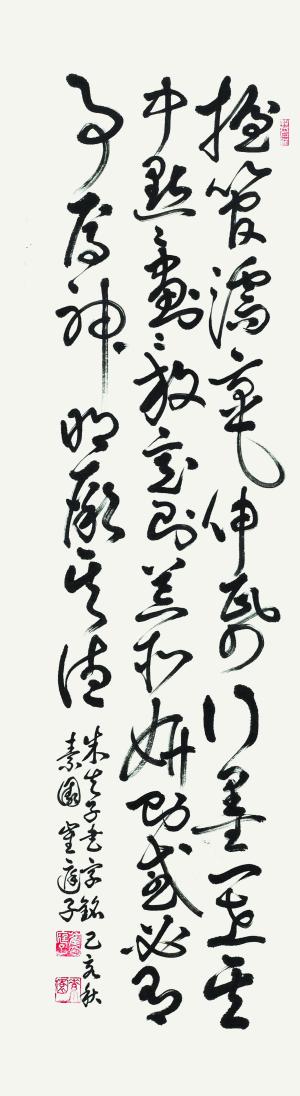 握管濡毫伸紙行墨一在其
中點〻畫〻放意則荒取妍則惑必有
事焉神明厥德
朱夫子書字銘 己亥秋
素園